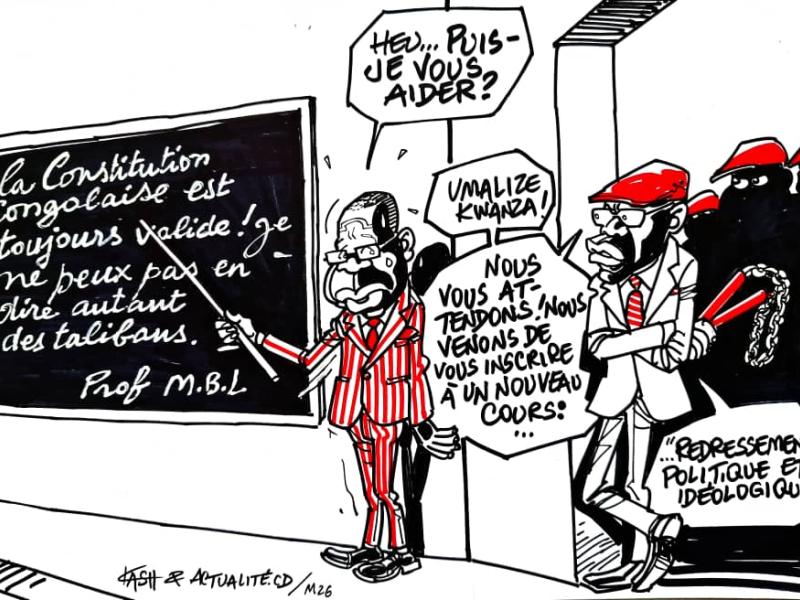 la Constitution
Congolaise est
toujours valide! je
ne peux pas en
dire autant
des talibans.
Prof M.B.L
HEU... PUIS-
JE VOUS
AIDER?
UMALIZE,
KWANZA!
NOUS
VOUS AT-
TENDONS! NOUS
VENONS DE
VOUS INSCRIRE
À UN NOUVEAU
COURS:
...
"...REDRESSEMEN
POLITIQUE ET
IDÉOLOGIQU
KASH & ACTUALITÉ.CD/M26